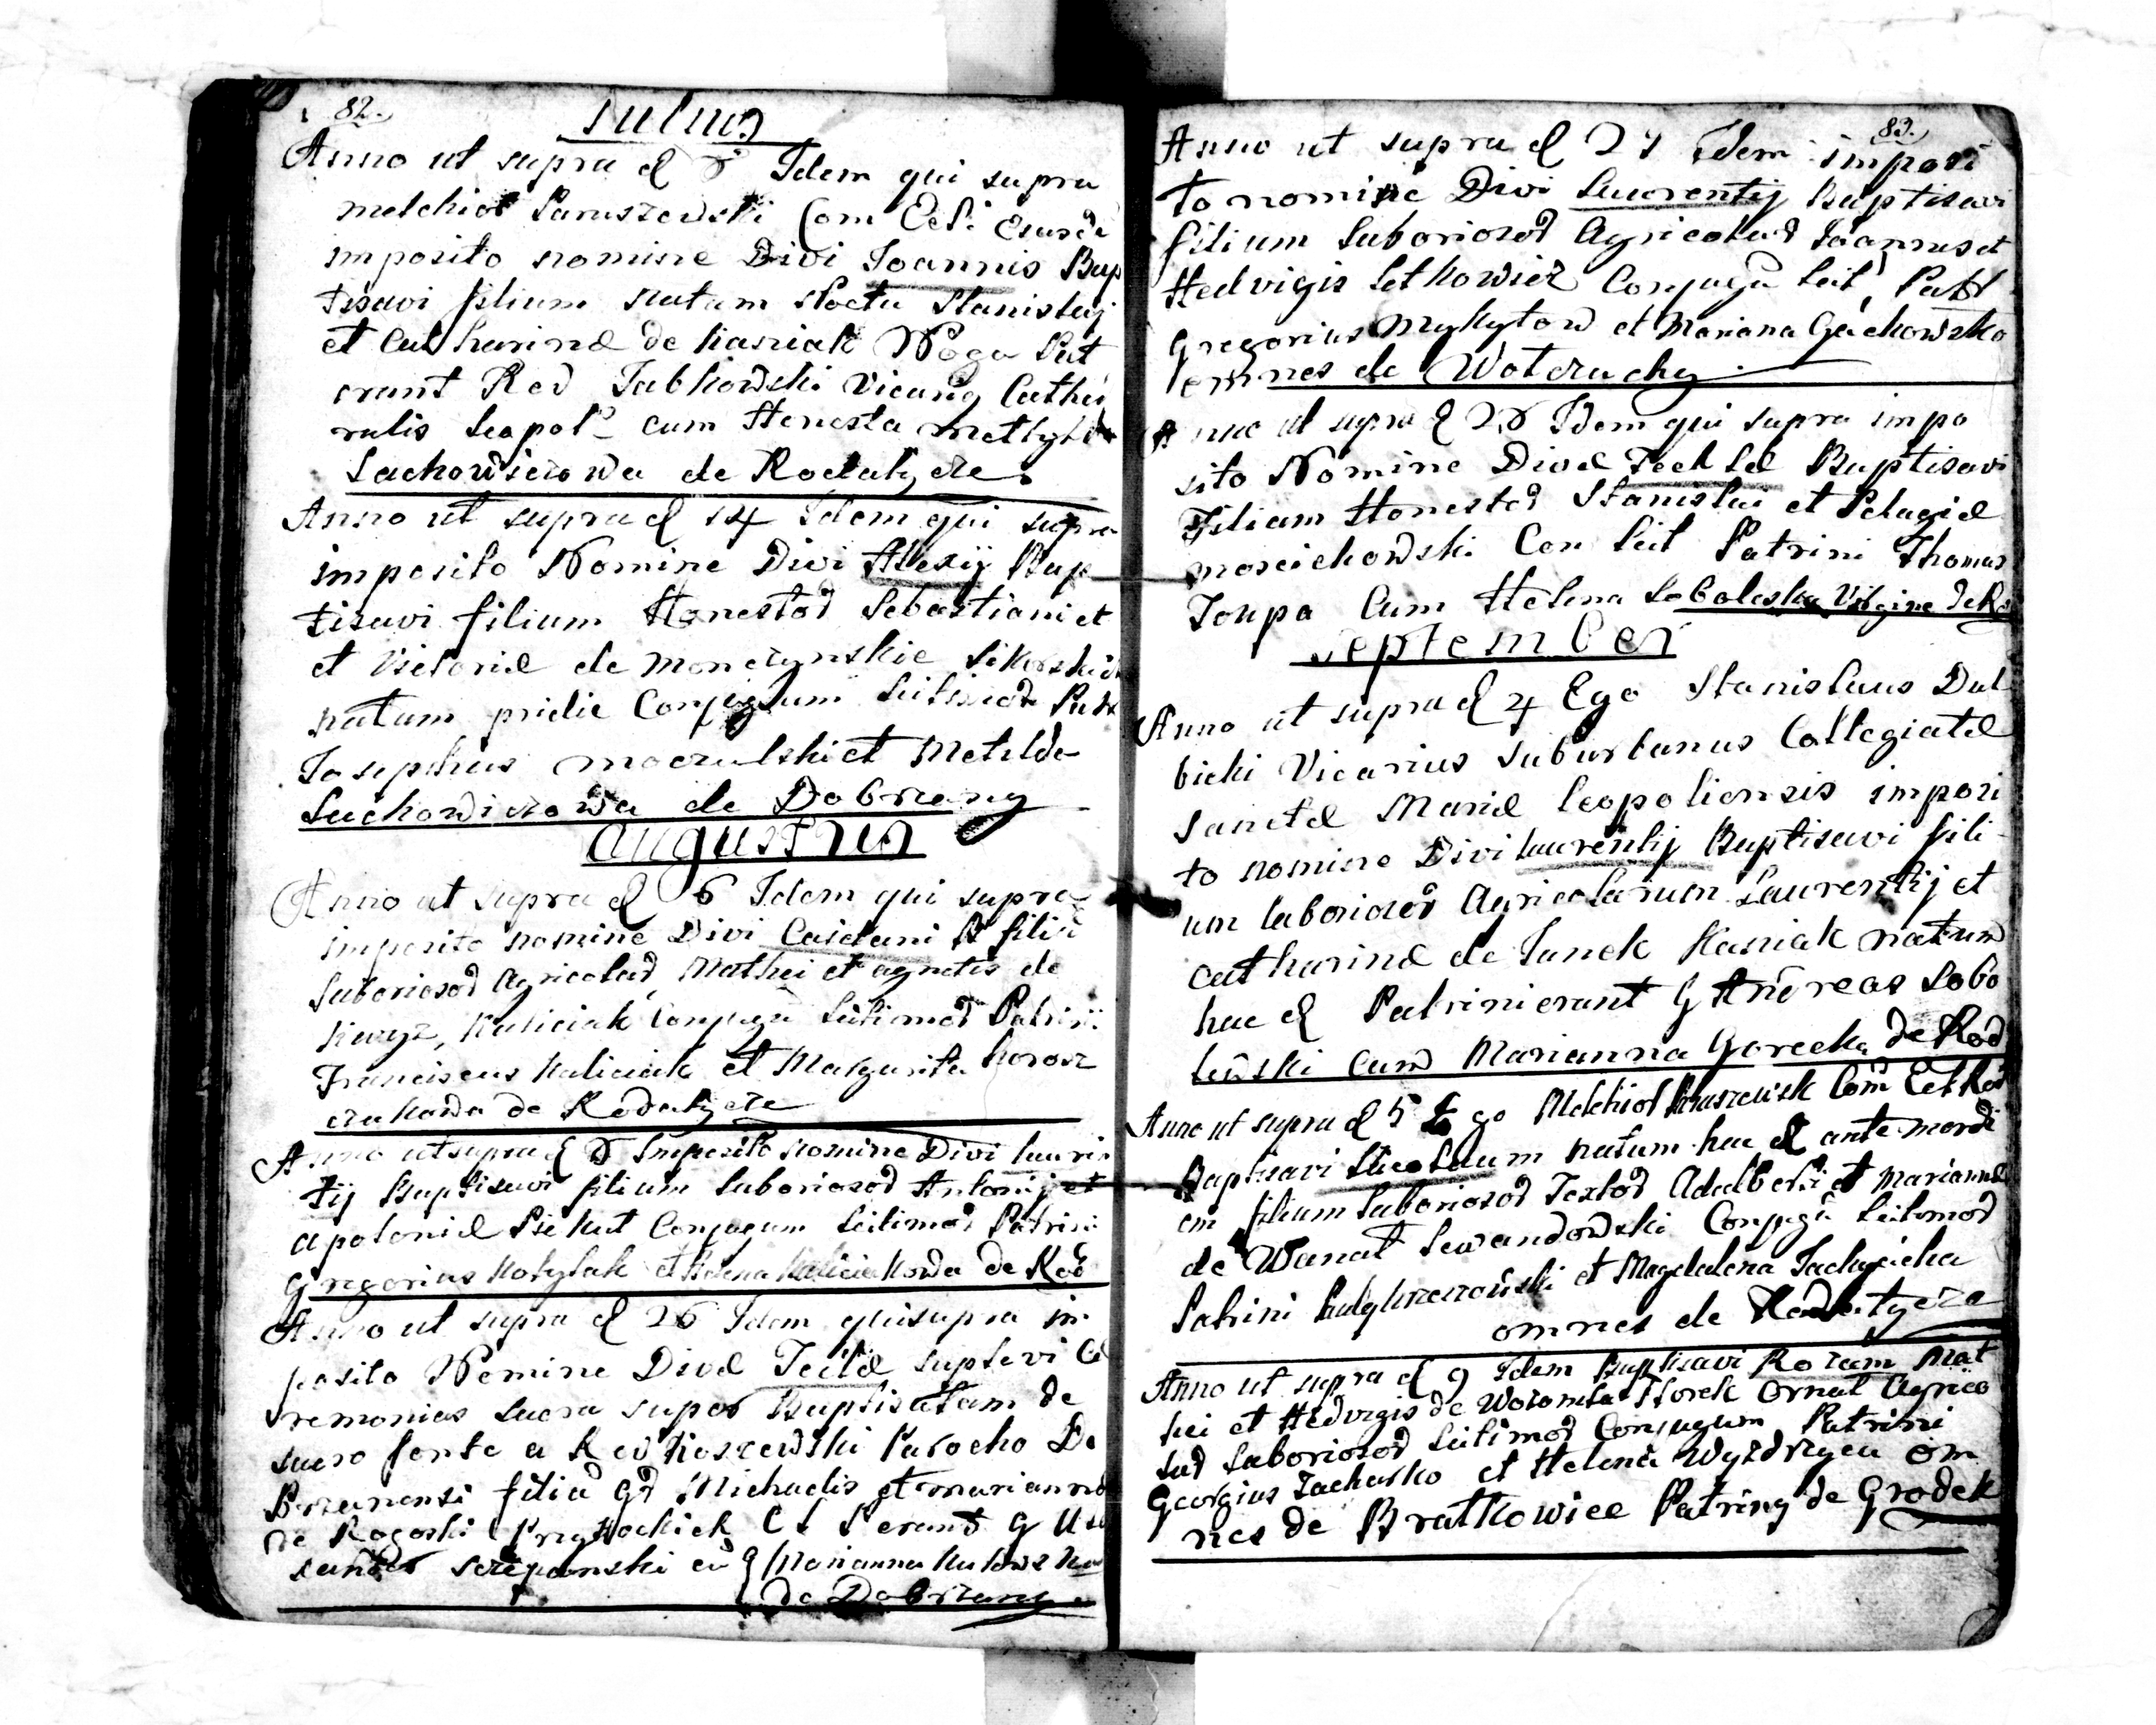 82.
Julius
Anno ut supra d 8 Idem qui supra
Melchior Paruszewski Com Ecl.
imposito nomine Divi Joannis Bap
tisavi filium natum Stanislaj
et Catharinæ de Kasziak Noga Pat
erant Red Jabkowski Vicariq Cathed
ralis Leopol. cum Honesta
Lachowiczowa de Rodatycze.
Anno ut supra d 14 Idem qui supra
imposito Nomine Divi Alexij Bap
tisavi filium Honestor Sebastiani et
et Victoriæ de Monczynskie
natum pridie Conjugum Leitimor Patr
Josephus et Metilda
Lachowiczowa de Dobrzany
Augustus
Anno ut supra d 6 Idem qui supra
imposito nomine Divi Caietani B filiu
Laboriosor Agricolar Mathei et agnetis de
Kaliciak Conjugu Leitimor Patrini
Franciscus Kaliciak et Margarita Korosz
czukowa de Rodatycze
Anno ut supra d 8 Imposito nomine Divi Lauren
tij Baptisavi filium Laboriosor Antonij et
apoloniæ Piekut Conjugum Leitimor Patrini
Gregorius Kotylak et Kaliciakowa de Rod
Anno ut supra d 26 Idem qui supra im
posito Nomine Divæ Teclæ suplevi Cæ
remonias Sacra super Baptisatam de
sacro fonte a Red Kioszewski Parocho Do
brzanensi filia Gd Michaelis et mariannæ
de Rogoski Przysłockich C L P erant G
Szczepanski cu G Marianna
de Dobrzany
83.
Anno ut supra d 27 Idem imposi
to nomine Divi Laurentij Baptisavi
filium Laboriosor Agricolar Joannis et
Hedvigis Letkowicz Conjugu Leit, Patr
Gregorius Mykytow et Mariana Gackowska
omnes de Wolczuchy
Anno ut supra d 28 Idem qui supra impo
sito Nomine Divæ Teclæ Baptisavi
Filiam Honestor Stanislai et Pelagiæ
Moscichowski Con Leit Patrini Thomas
Toupa Cum Helena Soboleska Virgine de Ro
September
Anno ut supra d 4 Ego Stanislaus Dul
bicki Vicarius suburbanus Collegiatæ
Sanctæ Mariæ Leopoliensis imposi
to nomine Divi Laurentij Baptisavi fili
um laboriosor Agricolarum Laurentij et
Catharinæ de Janek Kasziak natum
hac d Patrini erant G Andreas Sobo
lewski cum Marianna Gorecka de Rod
Anno ut supra d 5 Ego Melchior Paruszewsk Com Ecl Rod
Baptisavi Nicolaum natum hac d ante meridi
em filium Laboriosor Textor Adalberti et Mariannæ
de Wanat Lewandowski Conjugu Leitimor
Patrini et Magdalena
omnes de Rodatycze
Anno ut supra d 9 Idem Baptisavi Rozam Mat
hei et Hedvigis de Ornat Agrico
lar Laboriosor Leitimor Conjugum Patrini
Georgius Zacharko et Helena om
nes de Bratkowice Patrinq de Grodek